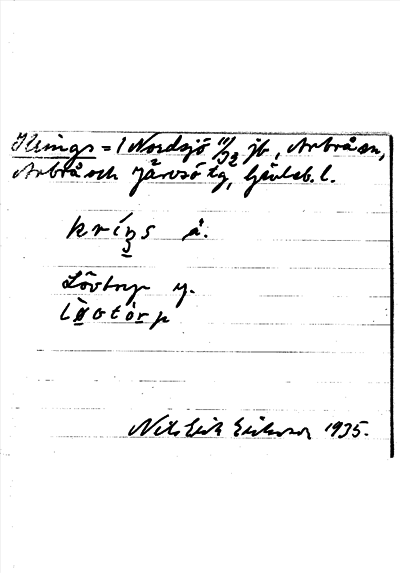 Krings = / Nordsjö 11/32 jb, Arbrå sn,
Arbrå och Järvsö tg, Gävleb. l.
kríŋs å.
Lövtorp y.
Nils Erik Eriksson 1935.